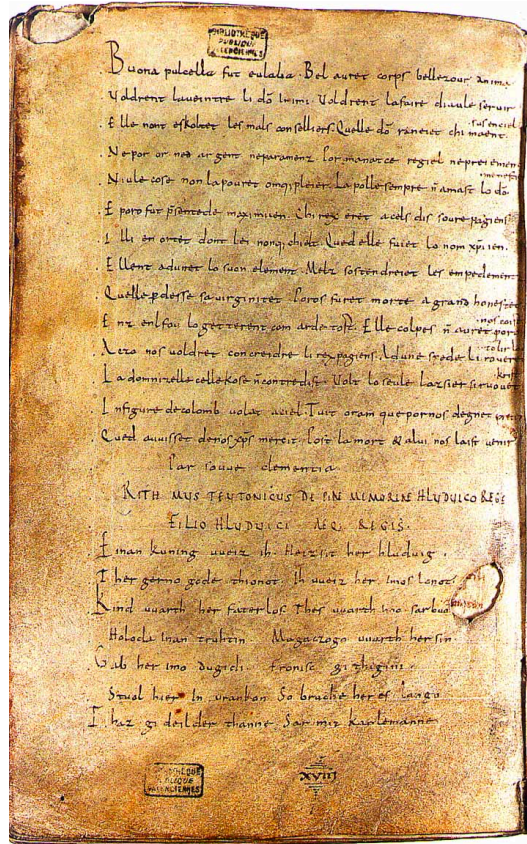 BIBLIOTHEQUE
PUBLIQUE
VALENCIENNES
Buona pulcella fut eulalia. Bel auret corps bellezour anima
Voldrent laveintre li dō inimi. Voldrent lafaire diaule servir
Elle nont eskoltet les mals conselliers. Quelle dō raneiet chi maent
sus en ciel
Ne por or ned argent ne paramenz. Por manatce regiel ne preiement
Niule cose non la pouret omq; pleier. La polle sempre ñ amast lo dō
menestier
E poro fut p̄sentede maximiien. Chi rex eret a cels dis soure pagiens
Il li enortet dont lei nonq; chielt. Qued elle fuiet lo nom xp̄iien.
Ellent adunet lo suon element. Melz sostendreiet les empedementz
Quelle p̱desse sa virginitet. Poros furet morte a grand honestet
Enz enl fou lo getterent com arde tost. Elle colpes ñ auret por
nos coist
Aezo nos voldret concreidre li rex pagiens. Ad une spede li roveret
tolir lo
La domnizelle celle kose ñ contredist. Volt lo seule lazsier si ruovet
krist
In figure de colomb volat a ciel. Tuit oram que por nos degnet preier
Qued auuisset de nos xp̄s mercit. Post la mort & a lui nos laist venir
Par souue clementia.
RITHMUS TEUTONICUS DE PIAE MEMORIAE HLUDUICO REGE
FILIO HLUDUICI AEQ; REGIS.
Einan kuning uueiz ih. Heizsit her hluduig.
Ther gerno gode thionot. Ih uueiz her imos lonot.
Kind uuarth her faterlos. Thes uuarth imo sar buoz
Holoda inan truhtin Magaczogo uuarth her sin.
Gab her imo dugidi. Fronisc githigini.
Stuol hier in urankon So bruche her es lango
Thaz gideilder thanne Sar mit karlemanne
BIBLIOTHEQUE
PUBLIQUE
VALENCIENNES
xviij